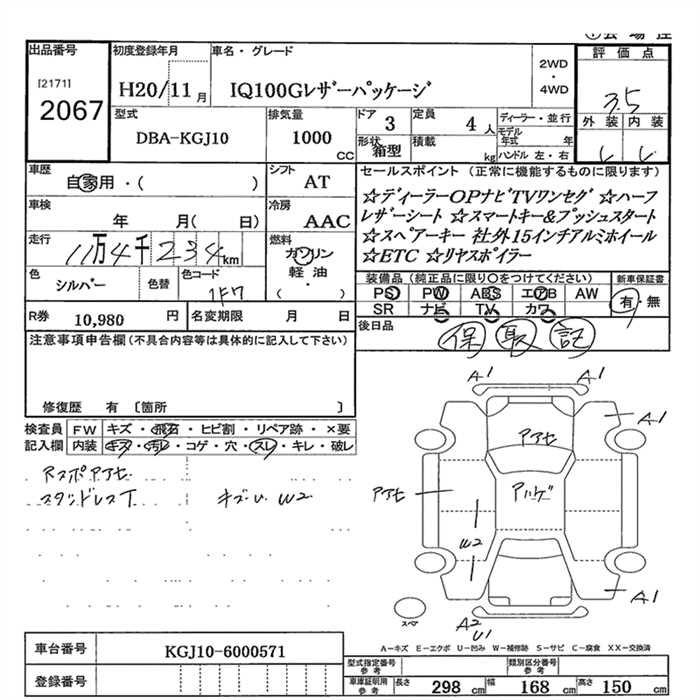 出品番号
[2171]
2067
初度登録年月
H20/11月
車名・グレード
IQ100Gレザーパッケージ
2WD
・
4WD
評価点
3.5
外装 内装
型式
DBA-KGJ10
排気量
1000
CC
ドア 3
形状 箱型
定員 4人
積載 kg
ディーラー・並行
モデル年式 年
ハンドル 左・右
車歴
自家用・( )
シフト
AT
車検
年 月( 日)
冷房
AAC
走行
11万4千234km
燃料
ガソリン
軽油
・
( )
色
シルバー
色替
色コード
1F7
R券 10,980 円
名変期限 月 日
セールスポイント (正常に機能するものに限ります)
☆ディーラーOPナビTVワンセグ ☆ハーフ
レザーシート ☆スマートキー&プッシュスタート
☆スペアーキー 社外15インチアルミホイール
☆ETC ☆リヤスポイラー
装備品 (純正品に限り○をつけてください)
PS PW ABS エアB AW
SR ナビ TV カワ
新車保証書
有・無
後日品
保 取 記
注意事項申告欄(不具合内容等は具体的に記入して下さい)
修復歴 有 〔箇所 〕
検査員
記入欄
FW キズ・飛石・ヒビ割・リペア跡・×要
内装 キズ・汚レ・コゲ・穴・スレ・キレ・破レ
Rスポアアセ
キズU W2
A1 A1
A1
アアセ
アアセ
W2
A1
A2
U1
スペア
A-キズ E-エクボ U-凹み W-補修跡 S-サビ C-腐食 XX-交換済
車台番号
KGJ10-6000571
登録番号
型式指定番号
参考
類別区分番号
参考
車庫証明用
参考
長さ 298 cm 幅 168 cm 高さ 150 cm